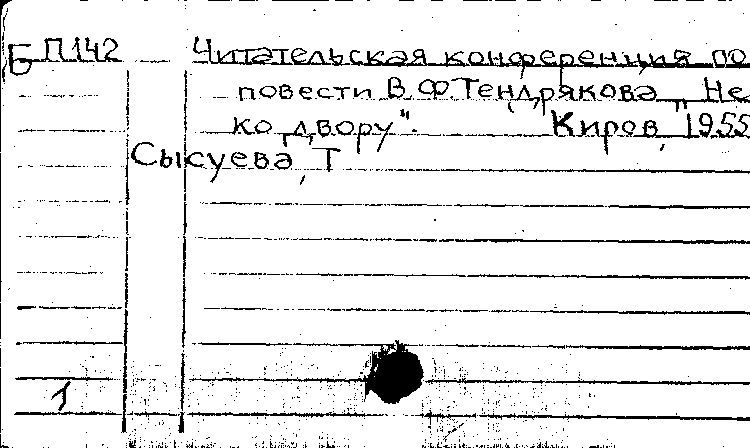 Б П142 Читательская конференция по
повести В.Ф.Тендрякова „Не
ко двору". Киров, 1955
Сысуева, Т
1